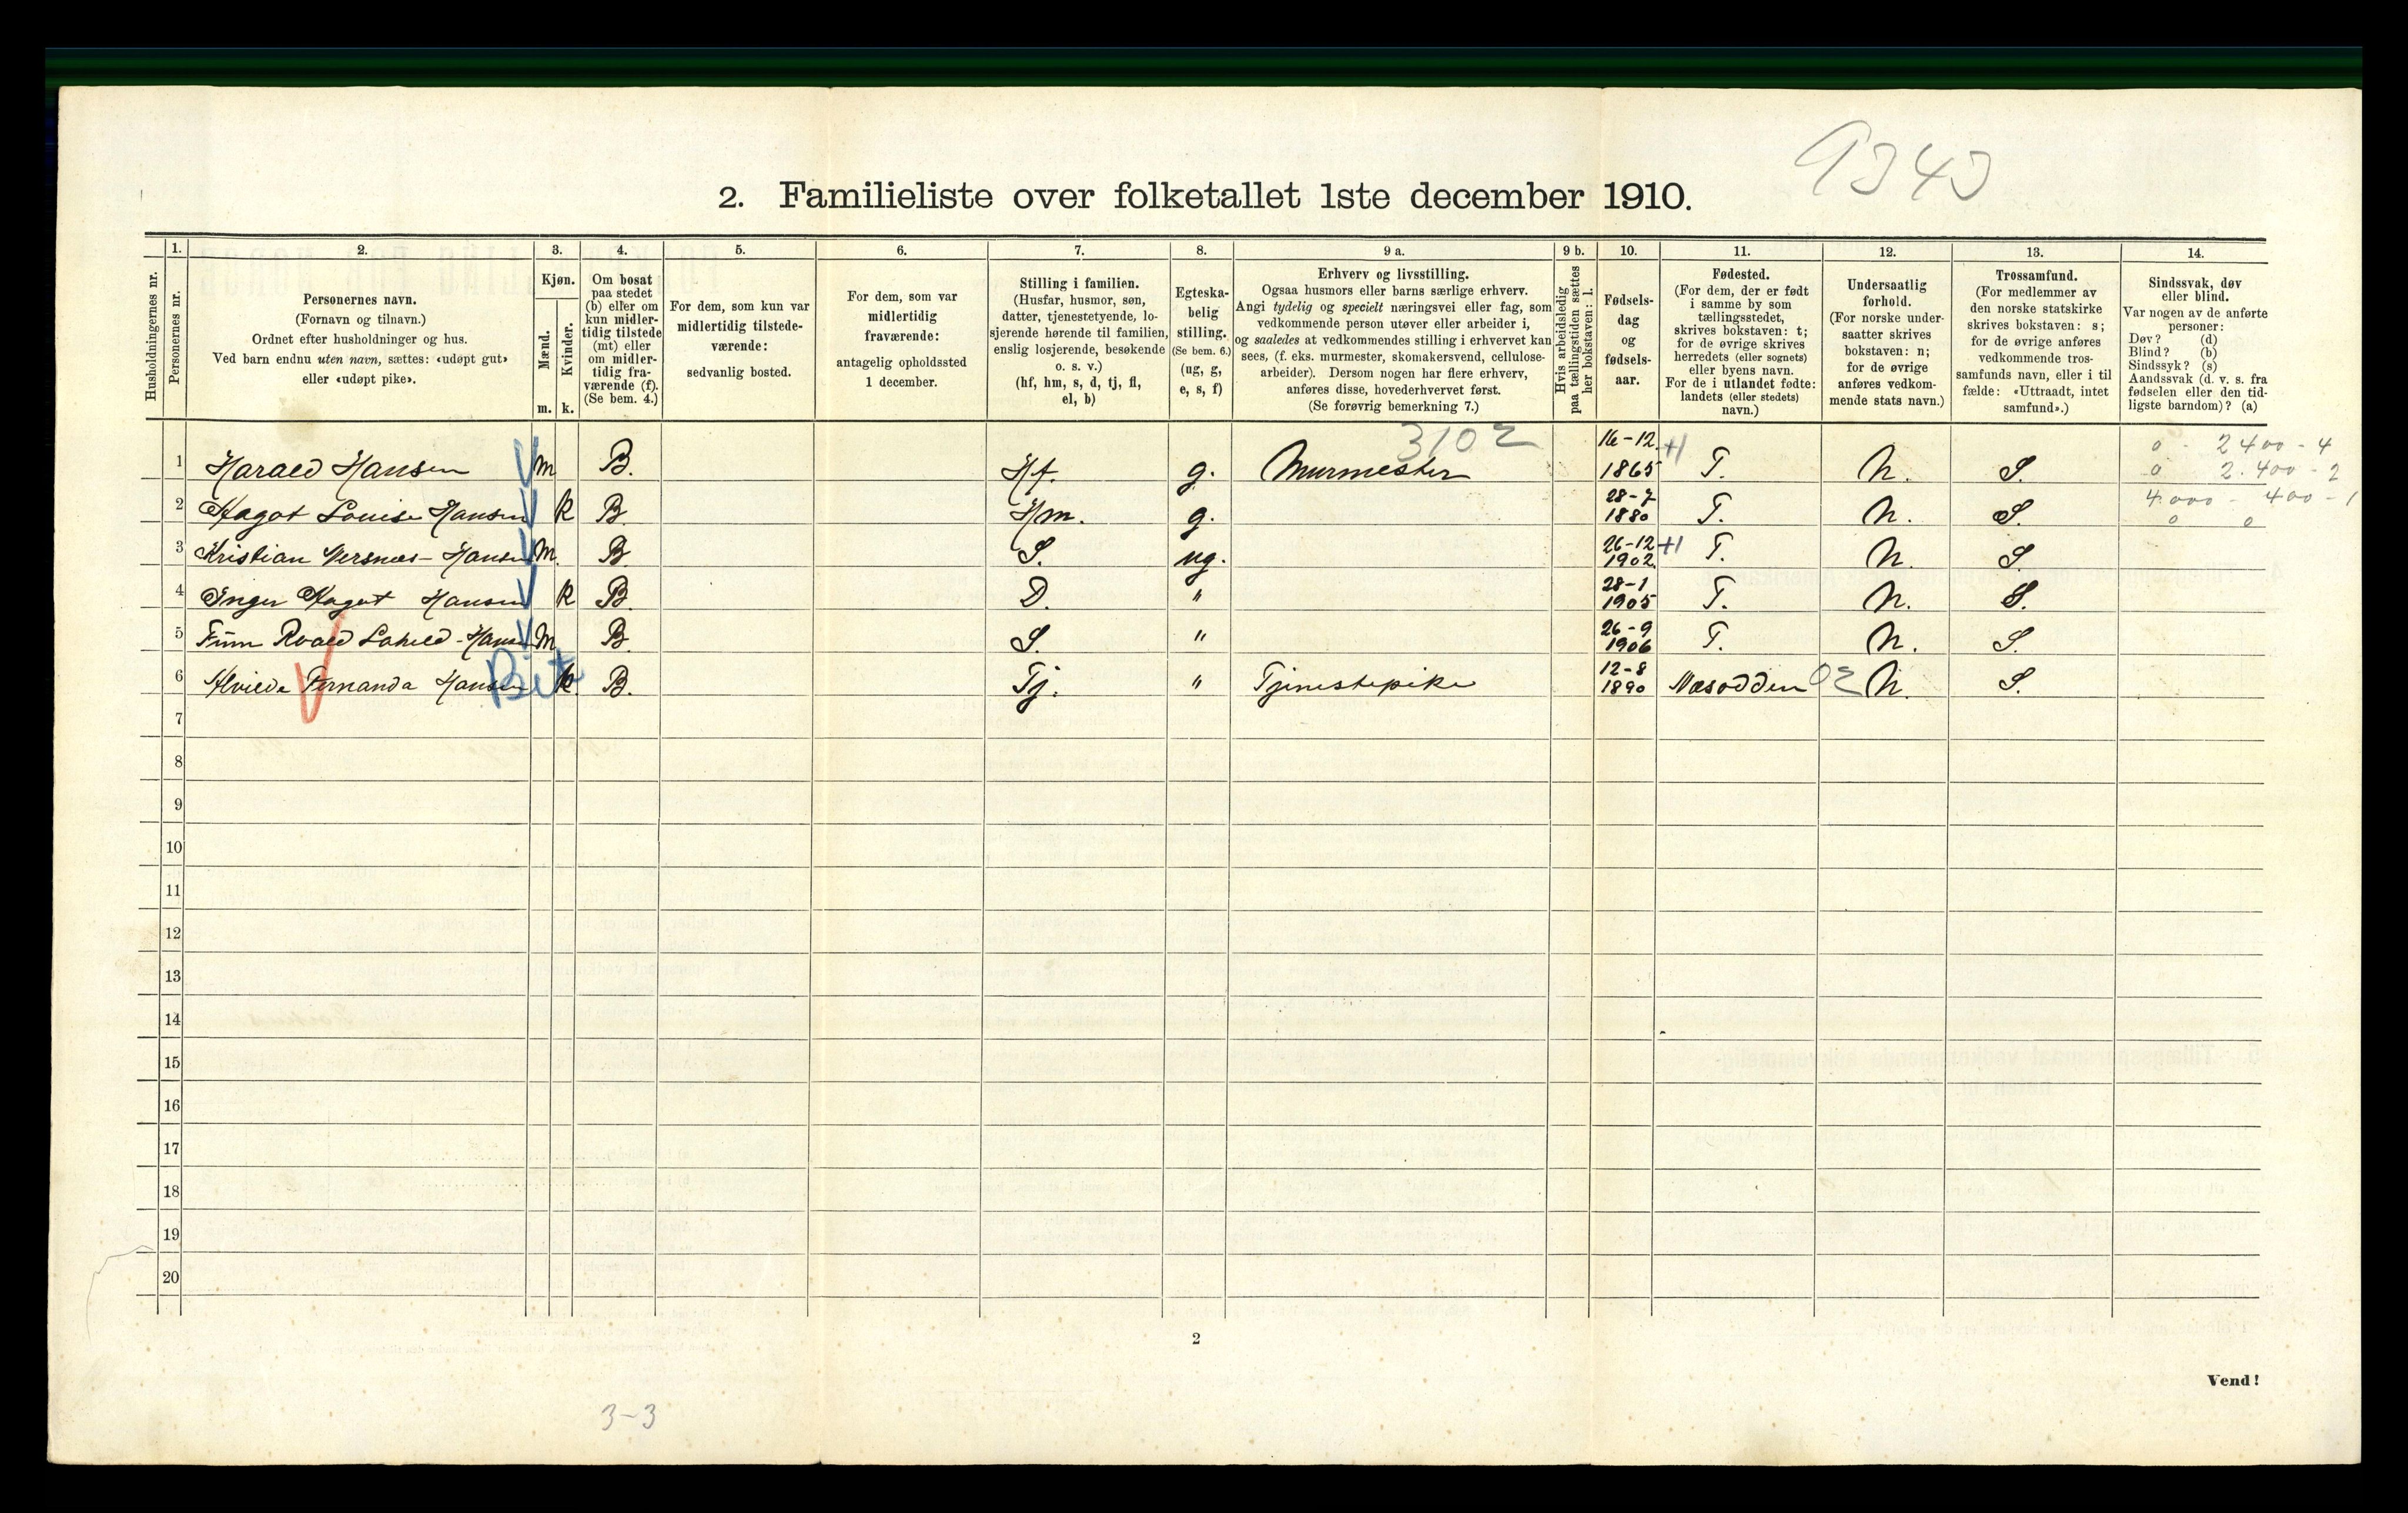 9343
2. Familieliste over folketallet 1ste december 1910.
Husholdningernes nr.
1.
Personernes nr.
2.
Personernes navn.
(Fornavn og tilnavn.)
Ordnet efter husholdninger og hus.
Ved barn endnu uten navn, sættes: «udøpt gut»
eller «udøpt pike».
3.
Kjøn.
Mænd.
Kvinder.
m. k.
4.
Om bosat
paa stedet
(b) eller om
kun midler-
tidig tilstede
(mt) eller
om midler-
tidig fra-
værende (f).
(Se bem. 4.)
5.
For dem, som kun var
midlertidig tilstede-
værende:
sedvanlig bosted.
6.
For dem, som var
midlertidig
fraværende:
antagelig opholdssted
1 december.
7.
Stilling i familien.
(Husfar, husmor, søn,
datter, tjenestetyende, lo-
sjerende hørende til familien,
enslig losjerende, besøkende
o. s. v.)
(hf, hm, s, d, tj, fl,
el, b)
8.
Egteska-
belig
stilling.
(Se bem. 6.)
(ug, g,
e, s, f)
9 a.
Erhverv og livsstilling.
Ogsaa husmors eller barns særlige erhverv.
Angi tydelig og specielt næringsvei eller fag, som
vedkommende person utøver eller arbeider i,
og saaledes at vedkommendes stilling i erhvervet kan
sees, (f. eks. murmester, skomakersvend, cellulose-
arbeider). Dersom nogen har flere erhverv,
anføres disse, hovederhvervet først.
(Se forøvrig bemerkning 7.)
9 b.
Hvis arbeidsledig
paa tællingstiden sættes
her bokstaven: l.
10.
Fødsels-
dag
og
fødsels-
aar.
11.
Fødested.
(For dem, der er født
i samme by som
tællingsstedet,
skrives bokstaven: t;
for de øvrige skrives
herredets (eller sognets)
eller byens navn.
For de i utlandet fødte:
landets (eller stedets)
navn.)
12.
Undersaatlig
forhold.
(For norske under-
saatter skrives
bokstaven: n;
for de øvrige
anføres vedkom-
mende stats navn.)
13.
Trossamfund.
(For medlemmer av
den norske statskirke
skrives bokstaven: s;
for de øvrige anføres
vedkommende tros-
samfunds navn, eller i til
fælde: «Uttraadt, intet
samfund».)
14.
Sindssvak, døv
eller blind.
Var nogen av de anførte
personer:
Døv? (d)
Blind? (b)
Sindssyk? (s)
Aandssvak (d. v. s. fra
fødselen eller den tid-
ligste barndom)? (a)
3102
0 - 2400 - 4
0 2.400 - 2
4.000 - 400 - 1
0 0
1 Harald Hansen m B. Hf. g. Murmester 16-12 1865 T. N. S.
2 Hagot Louise Hansen k B. Hm. g. 28-7 1880 T. N. S.
3 Kristian Hansen m. B. S. ug. 26-12 1902 T. N. S.
4 Inger Hagot Hansen k B. D. " 28-1 1905 T. N. S.
5 Finn Roald Hansen m B. S. " 26-9 1906 T. N. S.
6 Fernanda Hansen k. B. Tj. " Tjenestepike 12-8 1890 Næsodden 02 N. S.
7
8
9
10
11
12
13
14
15
16
17
18
19
20
2
Vend!
3-3